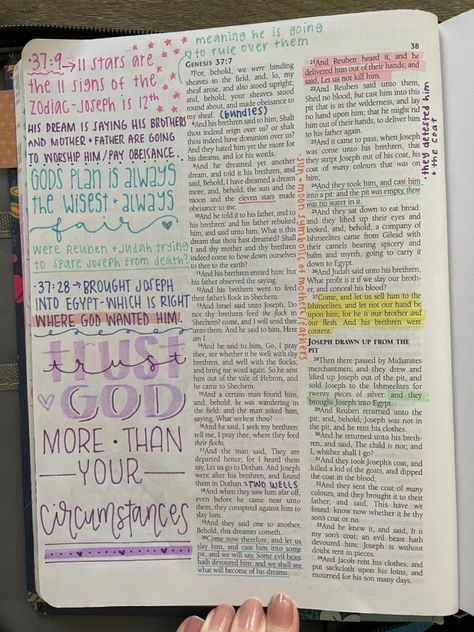 meaning he is going
to rule over them
38
·37:9→11 stars are
the 11 signs of the
zodiac - Joseph is 12th
HIS DREAM IS SAYING HIS BROTHERS
AND MOTHER + FATHER ARE GOING
TO WORSHIP HIM/PAY OBEISANCE..
GODS PLAN IS ALWAYS
THE WISEST + ALWAYS
fair
were Reuben + Judah trying
to spare Joseph from death?
·37:28→ BROUGHT JOSEPH
INTO EGYPT - WHICH IS RIGHT
WHERE GOD WANTED HIM.
trust
trust
GOD
MORE · THAN
—YOUR—
circumstances
GENESIS 37:7
7For, behold, we were binding
sheaves in the field, and, lo, my
sheaf arose, and also stood upright;
and, behold, your sheaves stood
round about, and made obeisance to
my sheaf.
(bundles)
8And his brethren said to him, Shalt
thou indeed reign over us? or shalt
thou indeed have dominion over us?
And they hated him yet the more for
his dreams, and for his words.
9And he dreamed yet another
dream, and told it his brethren, and
said, Behold, I have dreamed a dream
more; and, behold, the sun and the
moon and the eleven stars made
obeisance to me.
10And he told it to his father, and to
his brethren: and his father rebuked
him, and said unto him, What is this
dream that thou hast dreamed? Shall
I and thy mother and thy brethren
indeed come to bow down ourselves
to thee to the earth?
11And his brethren envied him; but
his father observed the saying.
12And his brethren went to feed
their father's flock in Shechem.
13And Israel said unto Joseph, Do
not thy brethren feed the flock in
Shechem? come, and I will send thee
unto them. And he said to him, Here
am I.
14And he said to him, Go, I pray
thee, see whether it be well with thy
brethren, and well with the flocks;
and bring me word again. So he sent
him out of the vale of Hebron, and
he came to Shechem.
15And a certain man found him,
and, behold, he was wandering in
the field: and the man asked him,
saying, What seekest thou?
16And he said, I seek my brethren:
tell me, I pray thee, where they feed
their flocks.
17And the man said, They are
departed hence; for I heard them
say, Let us go to Dothan. And Joseph
went after his brethren, and found
them in Dothan.
·TWO WELLS
18And when they saw him afar off,
even before he came near unto
them, they conspired against him to
slay him.
19And they said one to another,
Behold, this dreamer cometh.
20Come now therefore, and let us
slay him, and cast him into some
pit, and we will say, Some evil beast
hath devoured him: and we shall see
what will become of his dreams.
sun, moon symbolic of mother/father
21And Reuben heard it, and he
delivered him out of their hands; and
said, Let us not kill him.
22And Reuben said unto them,
Shed no blood, but cast him into this
pit that is in the wilderness, and lay
no hand upon him; that he might rid
him out of their hands, to deliver him
to his father again.
23And it came to pass, when Joseph
was come unto his brethren, that
they stript Joseph out of his coat, his
coat of many colours that was on
him;
24And they took him, and cast him
into a pit: and the pit was empty, there
was no water in it.
25And they sat down to eat bread:
and they lifted up their eyes and
looked, and, behold, a company of
Ishmeelites came from Gilead with
their camels bearing spicery and
balm and myrrh, going to carry it
down to Egypt.
26And Judah said unto his brethren,
What profit is it if we slay our brother,
and conceal his blood?
27Come, and let us sell him to the
Ishmeelites, and let not our hand be
upon him; for he is our brother and
our flesh. And his brethren were
content.
JOSEPH DRAWN UP FROM THE
PIT
28Then there passed by Midianites
merchantmen; and they drew and
lifted up Joseph out of the pit, and
sold Joseph to the Ishmeelites for
twenty pieces of silver: and they
brought Joseph into Egypt.
29And Reuben returned unto the
pit; and, behold, Joseph was not in
the pit; and he rent his clothes.
30And he returned unto his breth-
ren, and said, The child is not; and
I, whither shall I go?
31And they took Joseph's coat, and
killed a kid of the goats, and dipped
the coat in the blood;
32And they sent the coat of many
colours, and they brought it to their
father; and said, This have we
found: know now whether it be thy
son's coat or no.
33And he knew it, and said, It is
my son's coat; an evil beast hath
devoured him; Joseph is without
doubt rent in pieces.
34And Jacob rent his clothes, and
put sackcloth upon his loins, and
mourned for his son many days.
they detested him
+ the coat